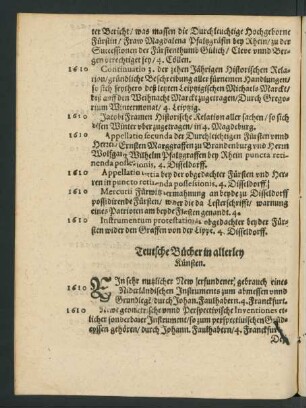 ter Bericht/ was massen die Durchleuchtige Hochgeborne
Fürstin/ Fraw Magdalena Pfaltzgräfin bey Rhein/ zu der
Succession der Fürstenthumb Gülich/ Cleve vnd Ber-
gen berechtiget sey/ 4. Cöllen.
1610 Continuatio der zehen Jährigen Historischen Rela-
tion/ gründliche Beschreibung aller fürnemen Handlungen/
so sich seythero deß letzten Leipzigischen Michaels Marckt/
biß auff den Weihnacht Marckt zugetragen/ Durch Grego-
rium Wintermonat/ 4. Leipzig.
1610 Jacobi Framen Historische Relation aller sachen/ so sich
diesen Winter vber zugetragen/ in 4. Magdeburg.
1610 Appellatio secunda der Durchleuchtigen Fürsten vnd
Herrn/ Ernsten Marggraffen zu Brandenburg vnd Herrn
Wolffgang Wilhelm Pfaltzgraffen bey Rhein puncto reti-
nendæ possessionis, 4. Disseldorff.
1610 Appellatio tertia bey der obgedachter Fürsten vnd Her-
ren in puncto retinendæ possessionis, 4. Disseldorff.
1610 Mercurii Fürwis vermahnung an beyde zu Disseldorff
possidirende Fürsten/ wider die da Lesterschrifft/ war-
nung eines Patrioten am beyde Fürsten genandt. 4.
1610 Instrumentum protestationis obgedachter beyder Für-
sten wider den Graffen von der Lippe. 4. Disseldorff.
Teutsche Bücher in allerley
Künsten.
1610 Ein sehr nutzlicher New erfundener gebrauch eines
Niderländischen Instruments zum abmessen vnnd
Grundlegt/ durch Johan. Faulhabern. 4. Franckfurt.
1610 Newe geometrische vnnd Perspectivische Inventiones et-
licher sonderbarer Instrument/ so zum perspectivischen Grund-
reissen gehören/ durch Johann. Faulhabern/ 4. Franckfurt.